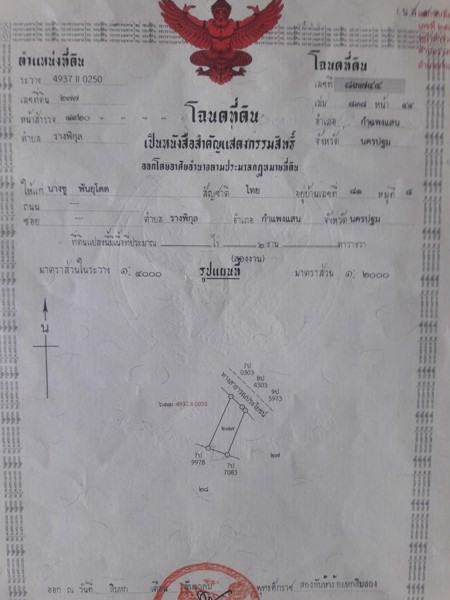 ตำแหน่งที่ดิน
ระวาง 4937 II 0250
เลขที่ดิน ๒๗๗
หน้าสำรวจ
ตำบล รางพิกุล
โฉนดที่ดิน
เลขที่
เล่ม หน้า ๔๔
อำเภอ กำแพงแสน
จังหวัด นครปฐม
โฉนดที่ดิน
เป็นหนังสือสำคัญแสดงกรรมสิทธิ์
ออกโดยอาศัยอำนาจตามประมวลกฎหมายที่ดิน
ให้แก่ นางชู พันธุโคตถ สัญชาติ ไทย อยู่บ้านเลขที่ ๘๑ หมู่ที่ ๘
ถนน —
ซอย — ตำบล รางพิกุล อำเภอ กำแพงแสน จังหวัด นครปฐม
ที่ดินแปลงนี้มีเนื้อที่ประมาณ ไร่ ๒ งาน ตารางวา
(สองงาน)
มาตราส่วนในระวาง ๑: ๔๐๐๐ รูปแผนที่ มาตราส่วน ๑: ๒๐๐๐
น
7ป
0303
8ป
4303
9ป
5973
ทางสาธารณประโยชน์
4937 II 0250
๒๗๗
7ป
9978
7ป
7083
๒๗
๒๘
ออก ณ วันที่ สิบหก เดือน พุทธศักราช สองพันห้าร้อยสามสิบสอง